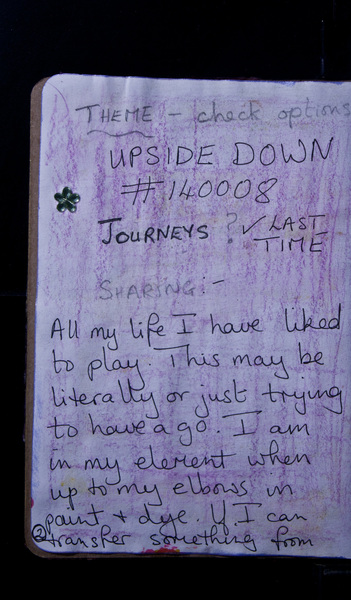 THEME - check options
UPSIDE DOWN
#140008
JOURNEYS ? ✓ LAST
TIME
SHARING:-
All my life I have liked
to play. This may be
literally or just trying
to have a go. I am
in my element when
up to my elbows in
paint + dye. If I can
② transfer something from